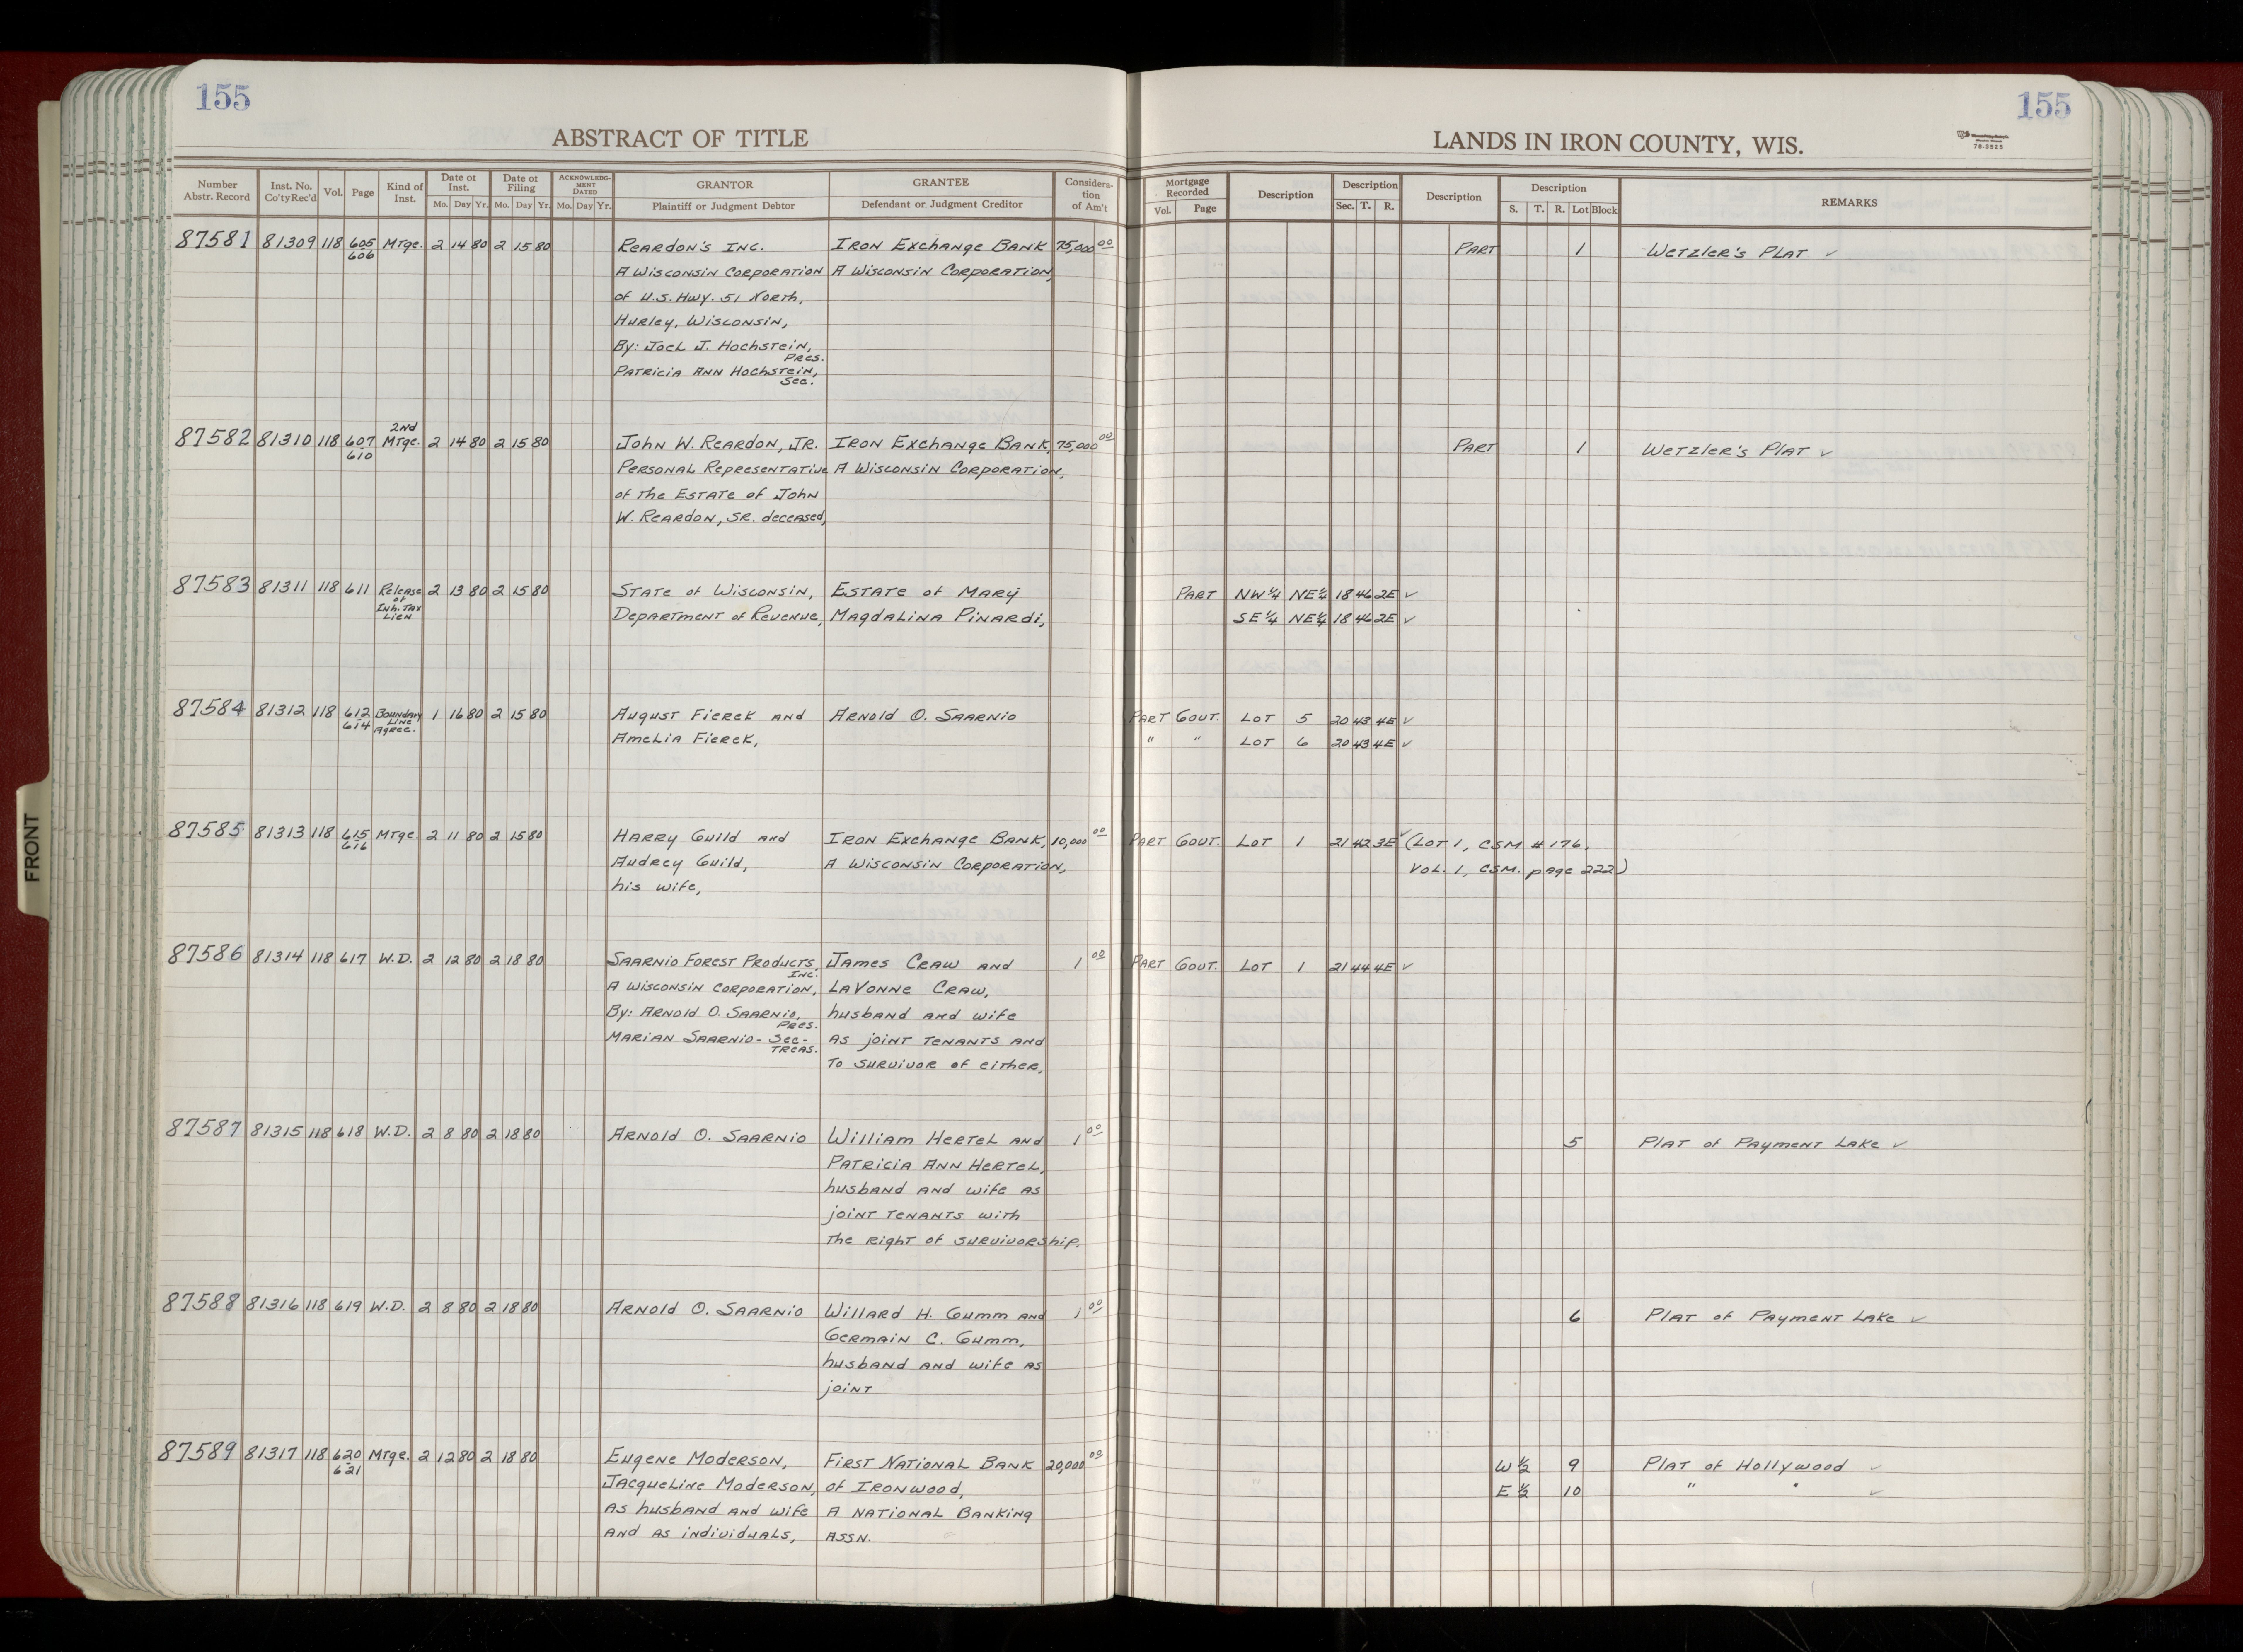 155
155
ABSTRACT OF TITLE
LANDS IN IRON COUNTY, WIS.
78-3525
Number Abstr. Record
Inst. No. Co'ty Rec'd
Vol.
Page
Kind of Inst.
Date of Inst. Mo. Day Yr.
Date of Filing Mo. Day Yr.
ACKNOWLEDG-MENT DATED Mo. Day Yr.
GRANTOR Plaintiff or Judgment Debtor
GRANTEE Defendant or Judgment Creditor
Considera-tion of Am't
Mortgage Recorded Vol. Page
Description
Description Sec. T. R.
Description
Description S. T. R. Lot Block
REMARKS
87581 81309 118 605 Mtge. 2 14 80 2 15 80 Reardon's Inc. Iron Exchange Bank 75,000 00 Part 1 Wetzler's Plat ✓
606
A Wisconsin Corporation A Wisconsin Corporation,
of U.S. Hwy. 51 North,
Hurley, Wisconsin,
By: Joel J. Hochstein,
Pres.
Patricia Ann Hochstein,
Sec.
2nd
87582 81310 118 607 Mtge. 2 14 80 2 15 80 John W. Reardon, Jr. Iron Exchange Bank, 75,000 00 Part 1 Wetzler's Plat ✓
610
Personal Representative A Wisconsin Corporation,
of the Estate of John
W. Reardon, Sr. deceased,
87583 81311 118 611 Release 2 13 80 2 15 80 State of Wisconsin, Estate of Mary Part NW¼ NE¼ 18 46 2E ✓
of
Inh. Tax
Lien
Department of Revenue, Magdalina Pinardi, SE¼ NE¼ 18 46 2E ✓
87584 81312 118 612 Boundary 1 16 80 2 15 80 August Fierek and Arnold O. Saarnio Part Gout. Lot 5 20 43 4E ✓
614 Line
Agree.
Amelia Fierek, " " Lot 6 20 43 4E ✓
87585 81313 118 615 Mtge. 2 11 80 2 15 80 Harry Guild and Iron Exchange Bank, 10,000 00 Part Gout. Lot 1 21 42 3E ✓ (Lot 1, CSM # 176,
616
Audrey Guild, A Wisconsin Corporation, Vol. 1, CSM. page 222)
his wife,
87586 81314 118 617 W.D. 2 12 80 2 18 80 Saarnio Forest Products, James Craw and 1 00 Part Gout. Lot 1 21 44 4E ✓
Inc.
A Wisconsin Corporation, LaVonne Craw,
By: Arnold O. Saarnio, husband and wife
Pres.
Marian Saarnio - Sec- as joint tenants and
Treas.
to survivor of either,
87587 81315 118 618 W.D. 2 8 80 2 18 80 Arnold O. Saarnio William Hertel and 1 00 5 Plat of Payment Lake ✓
Patricia Ann Hertel,
husband and wife as
joint tenants with
the right of survivorship.
87588 81316 118 619 W.D. 2 8 80 2 18 80 Arnold O. Saarnio Willard H. Gumm and 1 00 6 Plat of Payment Lake ✓
Germain C. Gumm,
husband and wife as
joint
87589 81317 118 620 Mtge. 2 12 80 2 18 80 Eugene Moderson, First National Bank 20,000 00 W½ 9 Plat of Hollywood ✓
621
Jacqueline Moderson, of Ironwood, E½ 10 " " ✓
as husband and wife A National Banking
and as individuals, Assn.
FRONT